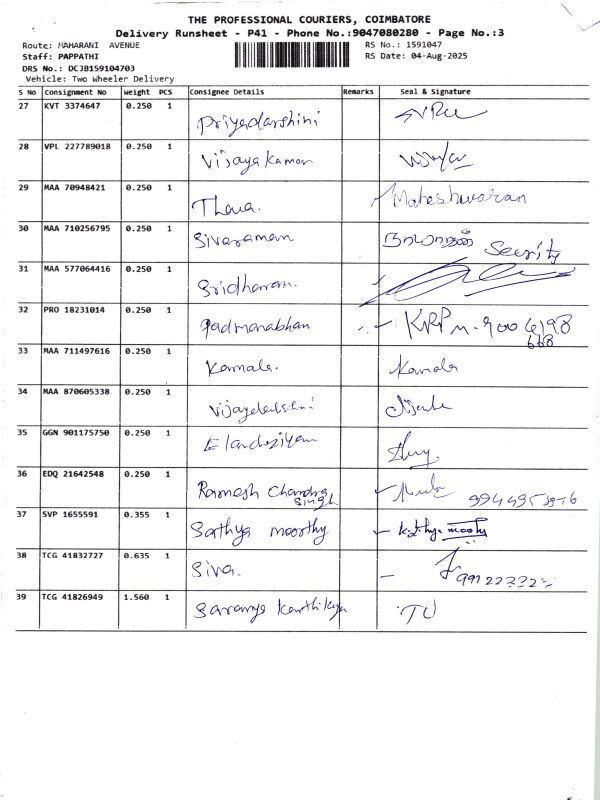 THE PROFESSIONAL COURIERS, COIMBATORE
Delivery Runsheet - P41 - Phone No.:9047080280 - Page No.:3
Route: MAHARANI AVENUE
RS No.: 1591047
Staff: PAPPATHI
RS Date: 04-Aug-2025
DRS No.: DCJB159104703
Vehicle: Two Wheeler Delivery
S No Consignment No Weight PCS Consignee Details Remarks Seal & Signature
27 KVT 3374647 0.250 1 Priyadarshini
28 VPL 227789018 0.250 1 Vijayakumar
29 MAA 70948421 0.250 1 Thava. Maheshwaran
30 MAA 710256795 0.250 1 Sivaraman Security
31 MAA 577064416 0.250 1 Sridharan.
32 PRO 18231014 0.250 1 Padmanabhan KRP
33 MAA 711497616 0.250 1 Kamala. Kamala
34 MAA 870605338 0.250 1 Vijayalakshmi
35 GGN 901175750 0.250 1
36 EDQ 21642548 0.250 1 Ramesh Chandra Singh
37 SVP 1655591 0.355 1 Sathya moorthy
38 TCG 41832727 0.635 1 Siva.
39 TCG 41826949 1.560 1 Saranya Karthikeya